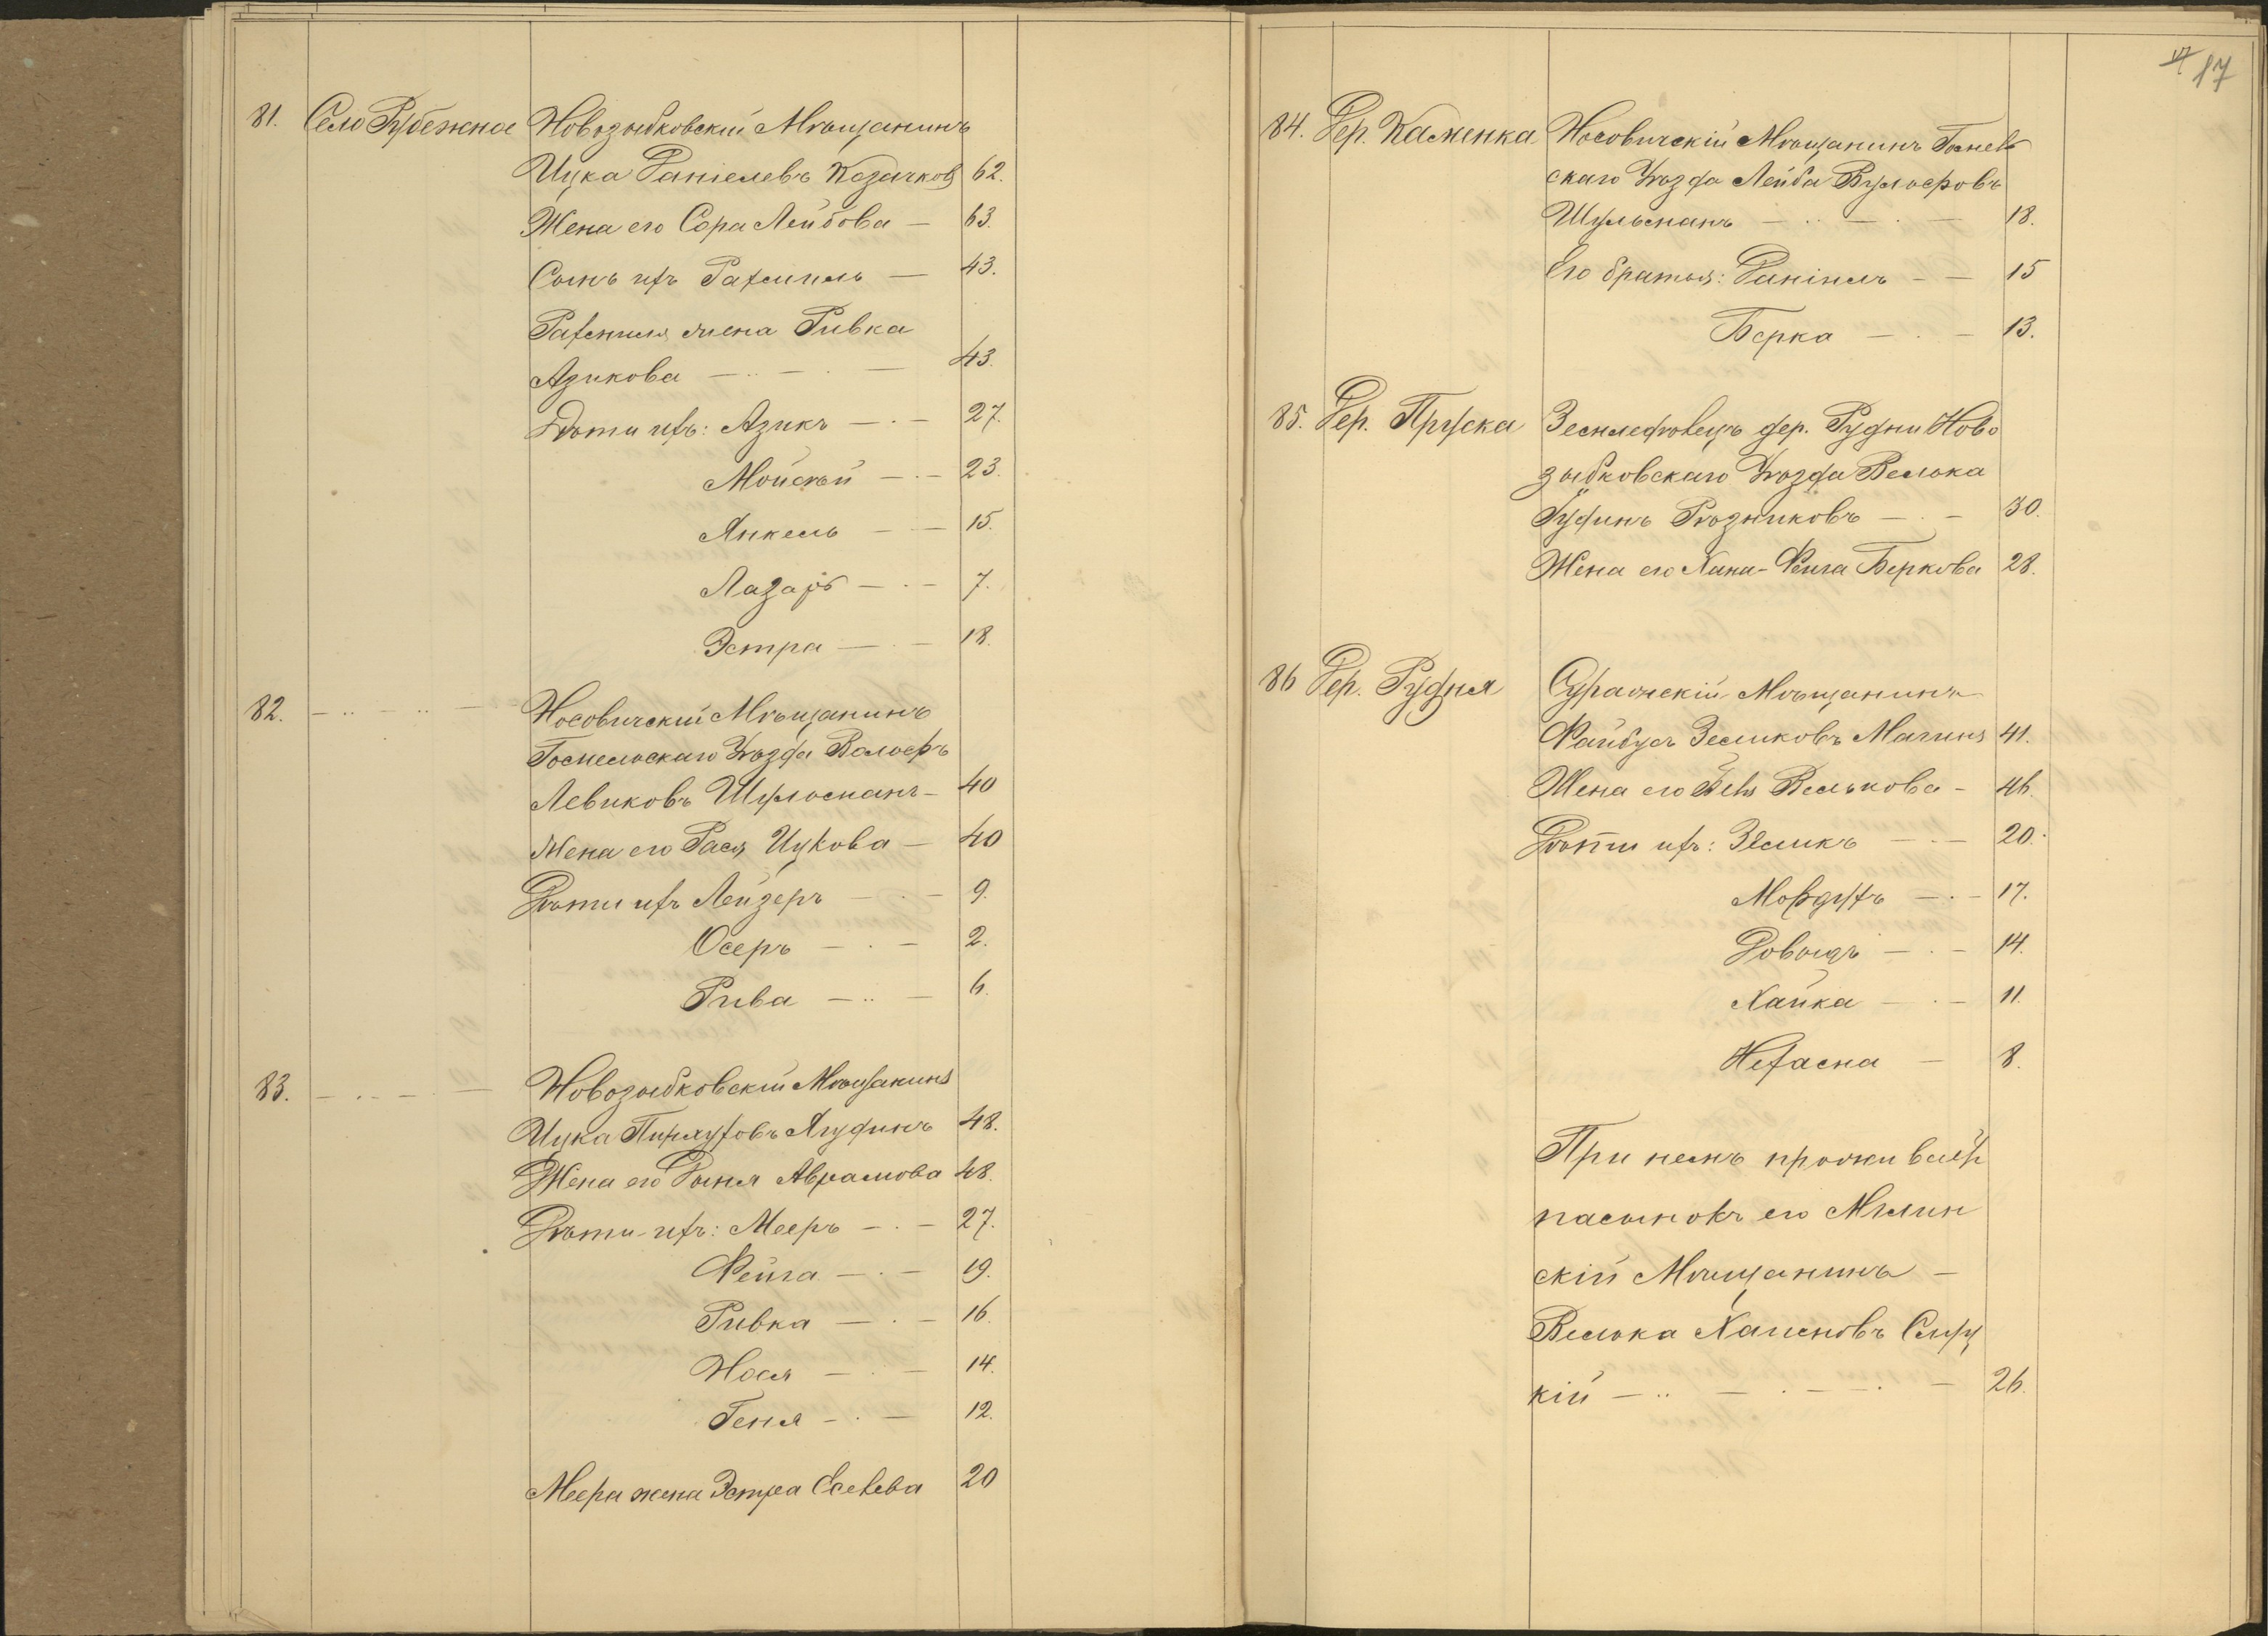 81. Село Рубежна Новозыбковскій Мѣщанинъ
Ицка Даніелевъ Козачковъ 62.
Жена его Сора Лейбова — 63.
Сынъ ихъ Рахмиель — 43.
Рахмиеля жена Ривка
Азикова — 43
Дѣти ихъ: Азикъ — 27.
Мойсѣй — 23.
Янкель — 15.
Лазарь — 7.
Эстра — 18.
82. — Носовичскій Мѣщанинъ
Гомельскаго Уѣзда Вольфъ
Левиковъ Шульманъ — 40
Жена его Рася Ицкова — 40
Дѣти ихъ Лейзеръ — 9.
Осеръ — 2.
Рива — 6.
83. — Новозыбковскій Мѣщанинъ
Ицка Ягудинъ 48.
Жена его Дыня Абрамова 48.
Дѣти ихъ: Мееръ — 27.
Фейга — 19.
Ривка — 16.
Нося — 14.
Геня — 12.
Меера жена Эстра 20
17 17
84. Дер. Каменка Носовичскій Мѣщанинъ Гомель
скаго Уѣзда Лейба Вульфовъ
Шульманъ — 18.
Его братья: Даніилъ — 15
Берка — 13.
85. Дер. Пруска Земледѣлецъ дер. Рудни Ново
зыбковскаго Уѣзда Велька
Гудинъ Рѣзниковъ — 30.
Жена его Хана-Фейга Беркова 28.
86 Дер. Рудня Суражскій Мѣщанинъ
Файбусъ Зеликовъ Магинъ 41.
Жена его Велькова — 46.
Дѣти ихъ: Зеликъ — 20.
Мордухъ — 17.
Довыдъ — 14.
Хайка — 11.
Нехама — 8.
При немъ проживаетъ
пасынокъ его Мглин
скій Мѣщанинъ —
Велька Хаимовъ
кій — 26.